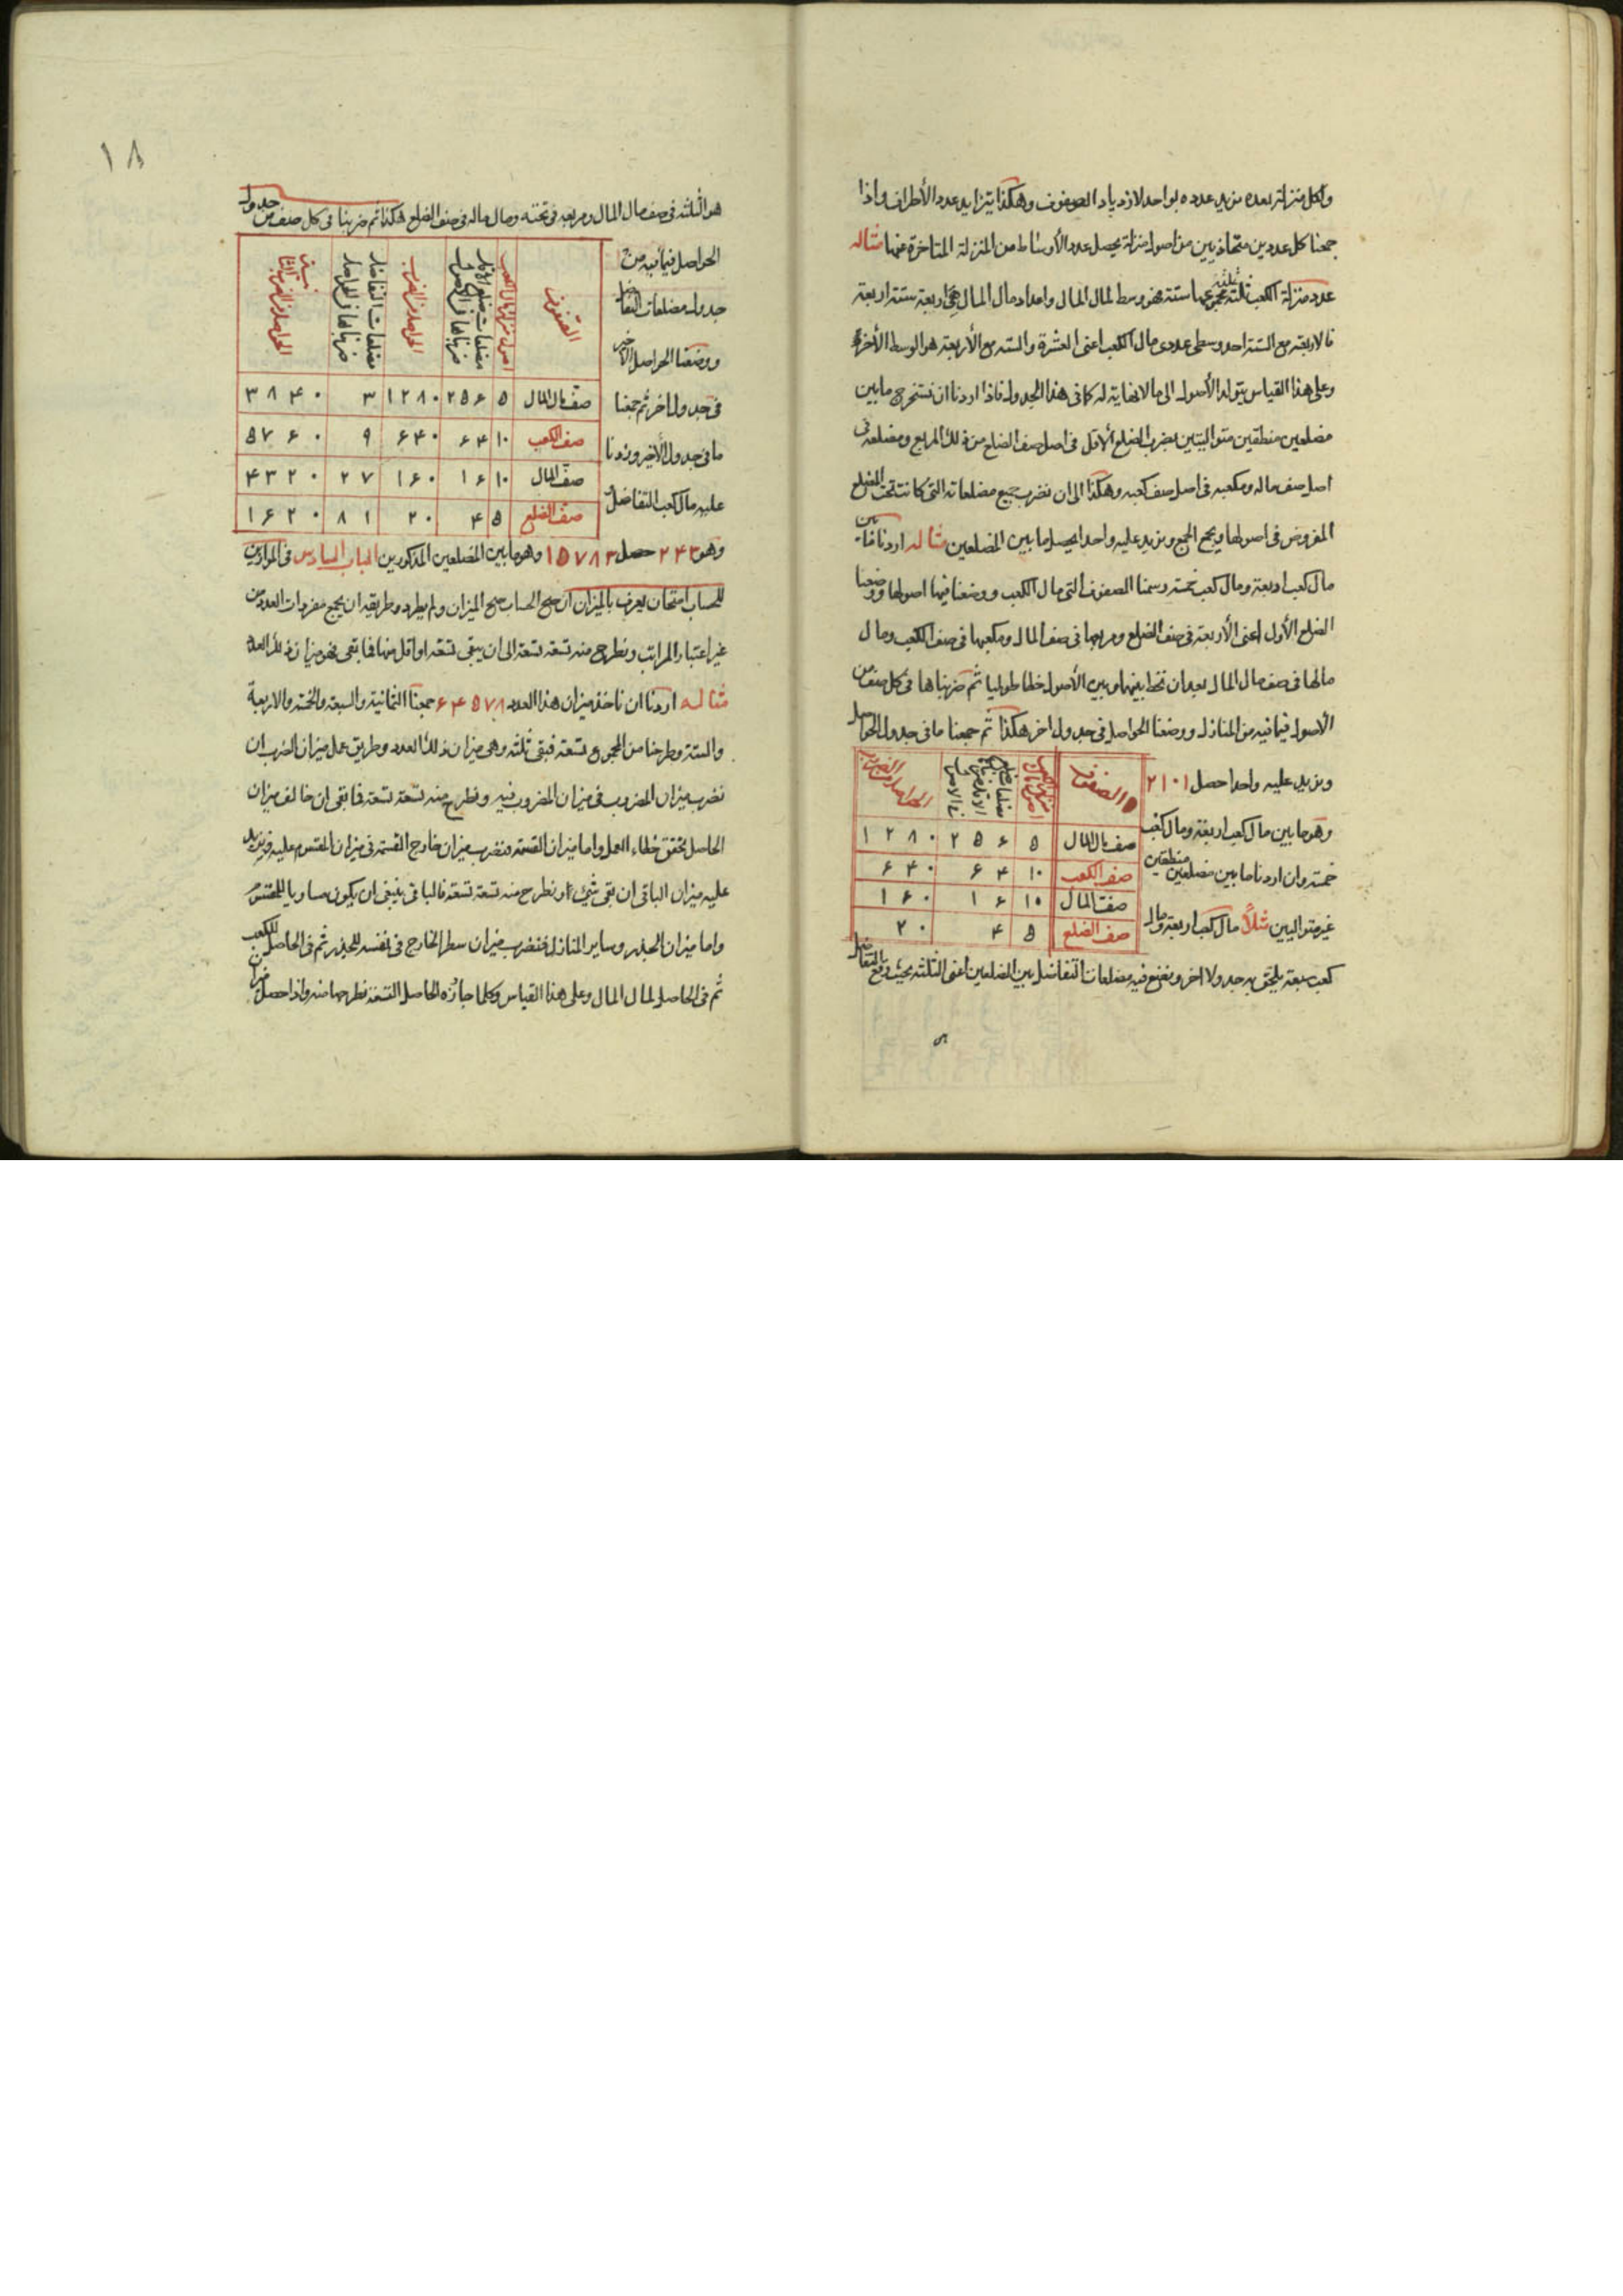 ولكل منزلة بعده نزيد عدده بواحد لازدياد الصفوف وهكذا يتزايد عدد الأطراف واذا
جمعنا كل عددين متحاذيين من اصول منزلة يحصل عدد الأوساط من المنزلة المتأخرة عنها مثاله
عدد منزلة الكعب ثلثة ثلثة مجموعهما ستة فهو وسط لمال المال واعداد مال المال هى اربعة ستة اربعة
فالاربعة مع الستة احد وسطى عددى مال الكعب اعنى العشرة والستة مع الأربعة هو الوسط الأخر
وعلى هذا القياس يتولد الأصول الى ما لا نهاية له كما فى هذا الجدول فاذا اردنا ان نستخرج ما بين
مضلعين منطقين متواليتين يضرب الضلع الاقل فى اصل صف الضلع من ذلك المربع ومضلعه فى
اصل صف ماله ومكعبه فى اصل صف كعبه وهكذا الى ان نضرب جميع مضلعاته التى كانت تحت المضلع
المفروض فى اصولها ونجمع الجمع ونزيد عليه واحدا يحصل ما بين المضلعين مثاله اردنا ما بين
مال كعب اربعة ومال كعب خمسة رسمنا الصفوف التى مال الكعب ووضعنا فيها اصولها ووضعنا
الضلع الأول اعنى الأربعة فى صف الضلع ومربعها فى صف المال ومكعبها فى صف الكعب ومال
مالها فى صف مال المال بعد ان نخط بينهما وبين الأصول خطا طوليا ثم ضربناها فى كل صف من
الأصول فيما فيه من المنازل ووضعنا الحواصل فى جدول اخر هكذا ثم جمعنا ما فى جدول الحواصل
ونزيد عليه واحدا حصل ٢١٠١
وهو ما بين مال كعب اربعة ومال كعب
خمسة وان اردنا ما بين مضلعين منطقين
غير متواليين مثلاً مال كعب اربعة ومال
الصفوف
صف مال المال ٥ ٢٥٦ ١٢٨٠
صف الكعب ١٠ ٦٤ ٦٤٠
صف المال ١٠ ١٦ ١٦٠
صف الضلع ٥ ٤ ٢٠
كعب سبعة يلحق به جدولا اخر ونضع فيه مضلعات التفاضل بين الضلعين اعنى الثلثة بحيث وقع التفاضل
١٨
هو الثلثة فى صف مال المال ومربعه فى تحته ومال ماله فى صف الضلع هكذا ثم ضربنا فى كل صف من جدول
الحواصل فيما فيه من
جدول مضلعات التفاضل
ووضعنا الحواصل الأخير
فى جدول اخر ثم جمعنا
ما فى جدول الأخير وزدنا
عليه مال كعب التفاضل
الصفوف
اصول منزلة مال الكعب
الحواصل من الضرب
مضلعات التفاضل ضربناها فى الحواصل
الحواصل من الضرب الثانى
صف مال المال ٥ ٢٥٦ ١٢٨٠ ٣ ٣٨٤٠
صف الكعب ١٠ ٦٤ ٦٤٠ ٩ ٥٧٦٠
صف المال ١٠ ١٦ ١٦٠ ٢٧ ٤٣٢٠
صف الضلع ٥ ٤ ٢٠ ٨١ ١٦٢٠
وهو ٢٤٣ حصل ١٥٧٨٣ وهو ما بين المضلعين المذكورين الباب السادس فى الموازين
للحساب امتحان يعرف بالميزان ان صح الحساب صح الميزان ولم يطرد وطريقه ان يجمع مفردات العدد من
غير اعتبار المراتب ونطرح منه تسعة تسعة الى ان يبقى تسعة او اقل منها فما بقى فهو ميزان ذلك العدد
مثاله اردنا ان ناخذ ميزان هذا العدد ٦٤٥٧٨ جمعنا الثمانية والسبعة والخمسة والاربعة
والستة وطرحنا من المجموع تسعة فبقى ثلثة وهى ميزان ذلك العدد وطريق عمل ميزان الضرب ان
نضرب ميزان المضروب فى ميزان المضروب فيه ونطرح منه تسعة تسعة فما بقى ان خالف ميزان
الحاصل تحقق خطاء العمل واما ميزان القسمة فنضرب ميزان خارج القسمة فى ميزان المقسوم عليه ونزيد
عليه ميزان الباقى ان بقى شئ ونطرح منه تسعة تسعة فالباقى ينبغى ان يكون مساويا للمقسوم
واما ميزان الجذر وساير المنازل فنضرب ميزان سطر الخارج فى نفسه للجذر ثم فى الحاصل للكعب
ثم فى الحاصل لمال المال وعلى هذا القياس وكلما جاوز الحاصل التسعة نطرحها منه واذا حصل ميزان